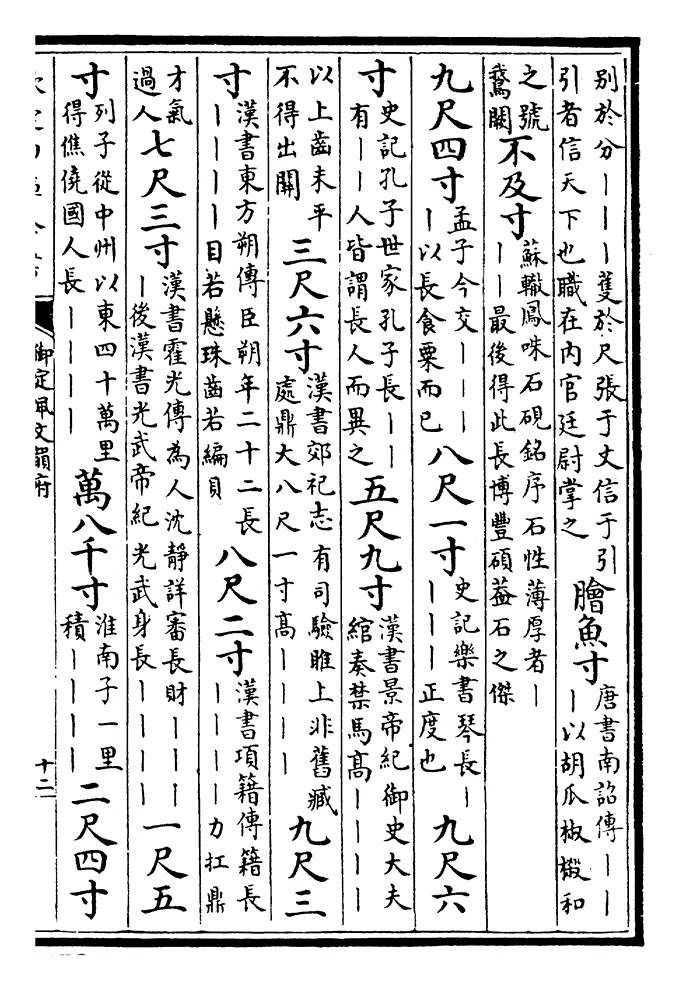 别於分丨丨丨蒦於尺張于丈信于引
引者信天下也職在内官廷尉掌之
膾魚寸
唐書南詔傳丨丨
丨以胡瓜椒榝和
之號
鵞闕
不及寸
蘇轍鳳咮石硯銘序石性薄厚者丨
丨丨最後得此長博豐碩葢石之傑
九尺四寸
孟子今交丨丨丨
丨以長食粟而已
八尺一寸
史記樂書琴長丨
丨丨丨正度也
九尺六
寸
史記孔子世家孔子長丨丨
有丨丨人皆謂長人而異之
五尺九寸
漢書景帝紀御史大夫
綰奏禁馬髙丨丨丨
以上齒未平
不得出關
三尺六寸
漢書郊祀志有司驗脽上非舊臧
處鼎大八尺一寸髙丨丨丨丨
九尺三
寸
漢書東方朔傳臣朔年二十二長
丨丨丨丨目若懸珠齒若編貝
八尺二寸
漢書項籍傳籍長
丨丨丨丨力扛鼎
才氣
過人
七尺三寸
漢書霍光傳為人沈靜詳審長財丨丨丨
丨後漢書光武帝紀光武身長丨丨丨丨
一尺五
寸
列子從中州以東四十萬里
得僬僥國人長丨丨丨丨
萬八千寸
淮南子一里
積丨丨丨丨
二尺四寸
御定佩文韻府
十二